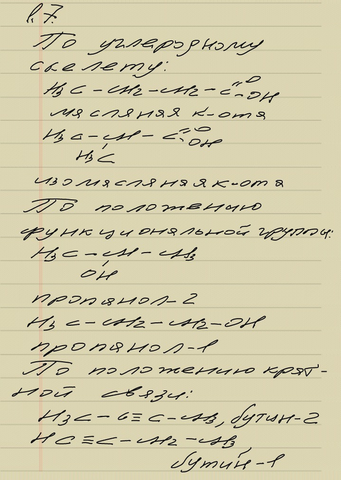 1.7.
По углеродному
скелету:
H₃C – CH₂ – CH₂ – C =O –OH
масляная к-ота
H₃C – CH – C =O –OH
H₃C
изомасляная к-ота
По положению
функциональной группы:
H₃C – CH – CH₃
OH
пропанол-2
H₃C – CH₂ – CH₂ – OH
пропанол-1
По положению крат-
ной связи:
H₃C – C≡C – CH₃, бутин-2
HC≡C – CH₂ – CH₃,
бутин-1